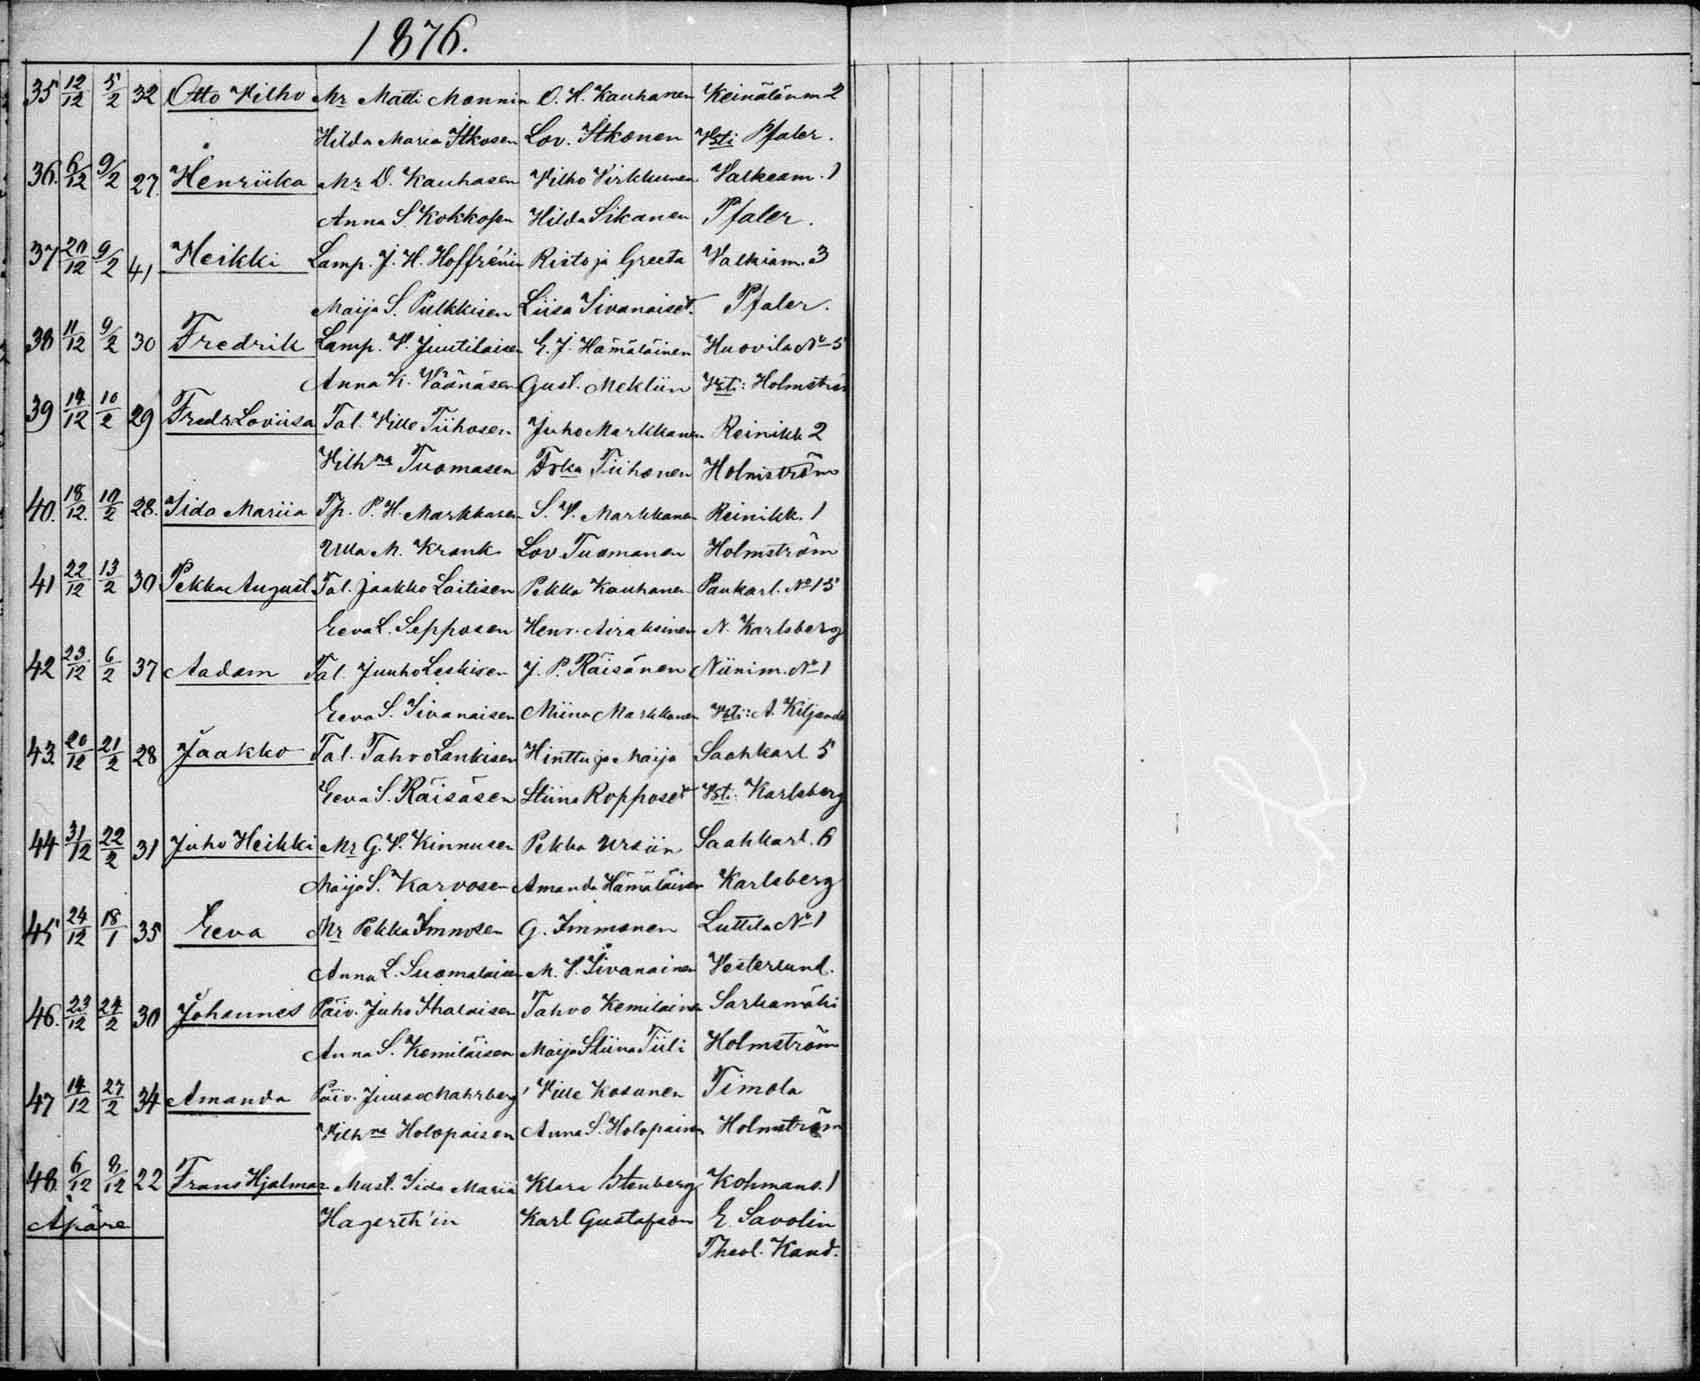 1876.
35 12/12 5/2 32 Otto Vilho Mr Matti Mannin O. H. Kauhanen Keinälänm 2
Hilda Maria Itkosen Lov. Itkonen Vsti Pfaler.
36. 6/12 9/2 27. Henriika Mr O. Kauhasen Vilho Virkkunen Valkeam. 1
Anna S Kokkosen Hilda Sikanen Pfaler.
37 20/12 9/2 41 Heikki Lamp. J. H. Hoffrénin Risto ja Greeta Valkiam. 3
Maija S. Pulkkisen Liisa Iivanaiset. Pfaler.
38 11/12 9/2 30 Fredrik Lamp. V. Juutilaisen E. J. Hämäläinen Huovila No 5
Anna K. Väänäsen Gust. Mekliin Vsti: Holmström
39 14/12 10/2 29 Fredr Loviisa Tal. Ville Tiihosen Juho Markkanen Reinikk 2
Vilhna Tuomasen Frka Tiihonen Holmström
40. 18/12. 10/2 28. Iida Mariia Tp. P. H. Markkasen S. V. Markkanen Reinikk. 1
Ulla M. Krank Lov Tuomanen Holmström
41 22/12 13/2 30 Pekka August Tal. Jaakko Laitisen Pekka Kauhanen Paukarl. No 15
Eeva L. Sepposen Henr. Airaksinen N. Karlsberg
42 23/12 6/2 37 Aadam Tal. Juuho Leskisen J. P. Räisänen Niinim. No 1
Eeva S. Iivanaisen Miina Markkanen Vsti: A. Kiljander
43. 20/12 21/2 28 Jaakko Tal. Tahvo Lankisen Hinttu ja Maija Saahkarl. 5
Eeva S. Räisäsen Stiina Ropposet Vst: Karlsberg
44 31/12 22/2 31 Juho Heikki Mr G. V. Kinnusen Pekka Ursiin Saahkarl. 6
Maija S. Karvosen Amanda Hämäläinen Karlsberg
45 24/12 18/1 35 Eeva Mr Pekka Immosen G. Immonen Luttila No 1
Anna L. Suomalaisen M. V. Iivanainen Vesterlund.
46. 23/12 24/2 30 Johannes Päiv. Juho Ihalaisen Tahvo Kemiläinen Sarkamäki
Anna S. Kemiläisen Maija Stiina Tiili Holmström
47 14/12 27/2 34 Amanda Päiv. Juuso Mahrberg Ville Kosunen Timola
Vilhna Holopaisen Anna S. Holopainen Holmström
48. 6/12 9/12 22 Frans Hjalmar Must. Iida Maria Klara Stenberg Kohmans. 1
Äpäre Hagerth'in Karl Gustafson E. Savolin
Theol. Kand.